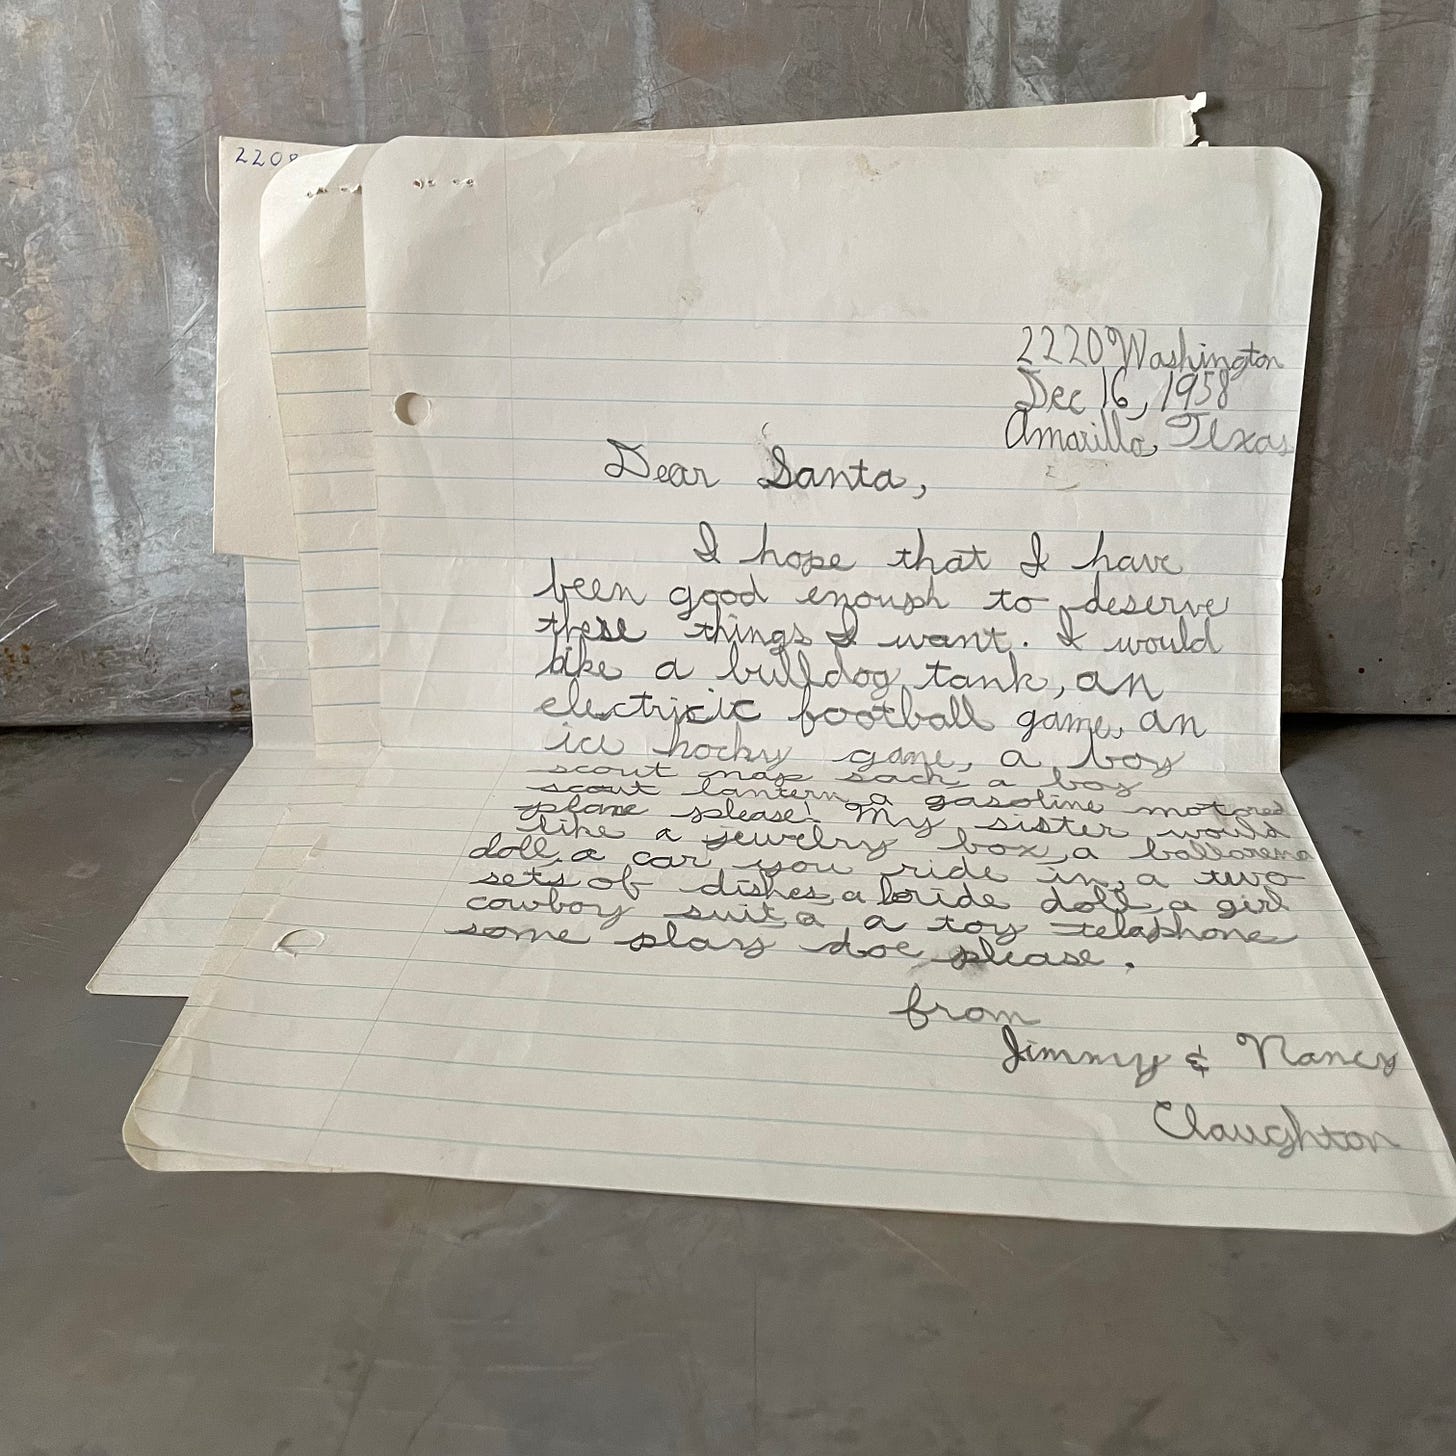 220
2220 Washington
Dec 16, 1958
Amarillo, Texas
Dear Santa,
I hope that I have
been good enough to deserve
these things I want. I would
like a bulldog tank, an
electricic football game, an
ice hocky game, a boy
scout nap sack, a boy
scout lantern, a gasoline motored
plane please! My sister would
like a jewelry box, a ballarena
doll, a car you ride in, a two
sets of dishes, a bride doll, a girl
cowboy suit, a a toy telaphone
some play doe please.
from
Jimmy & Nancy
Claughton